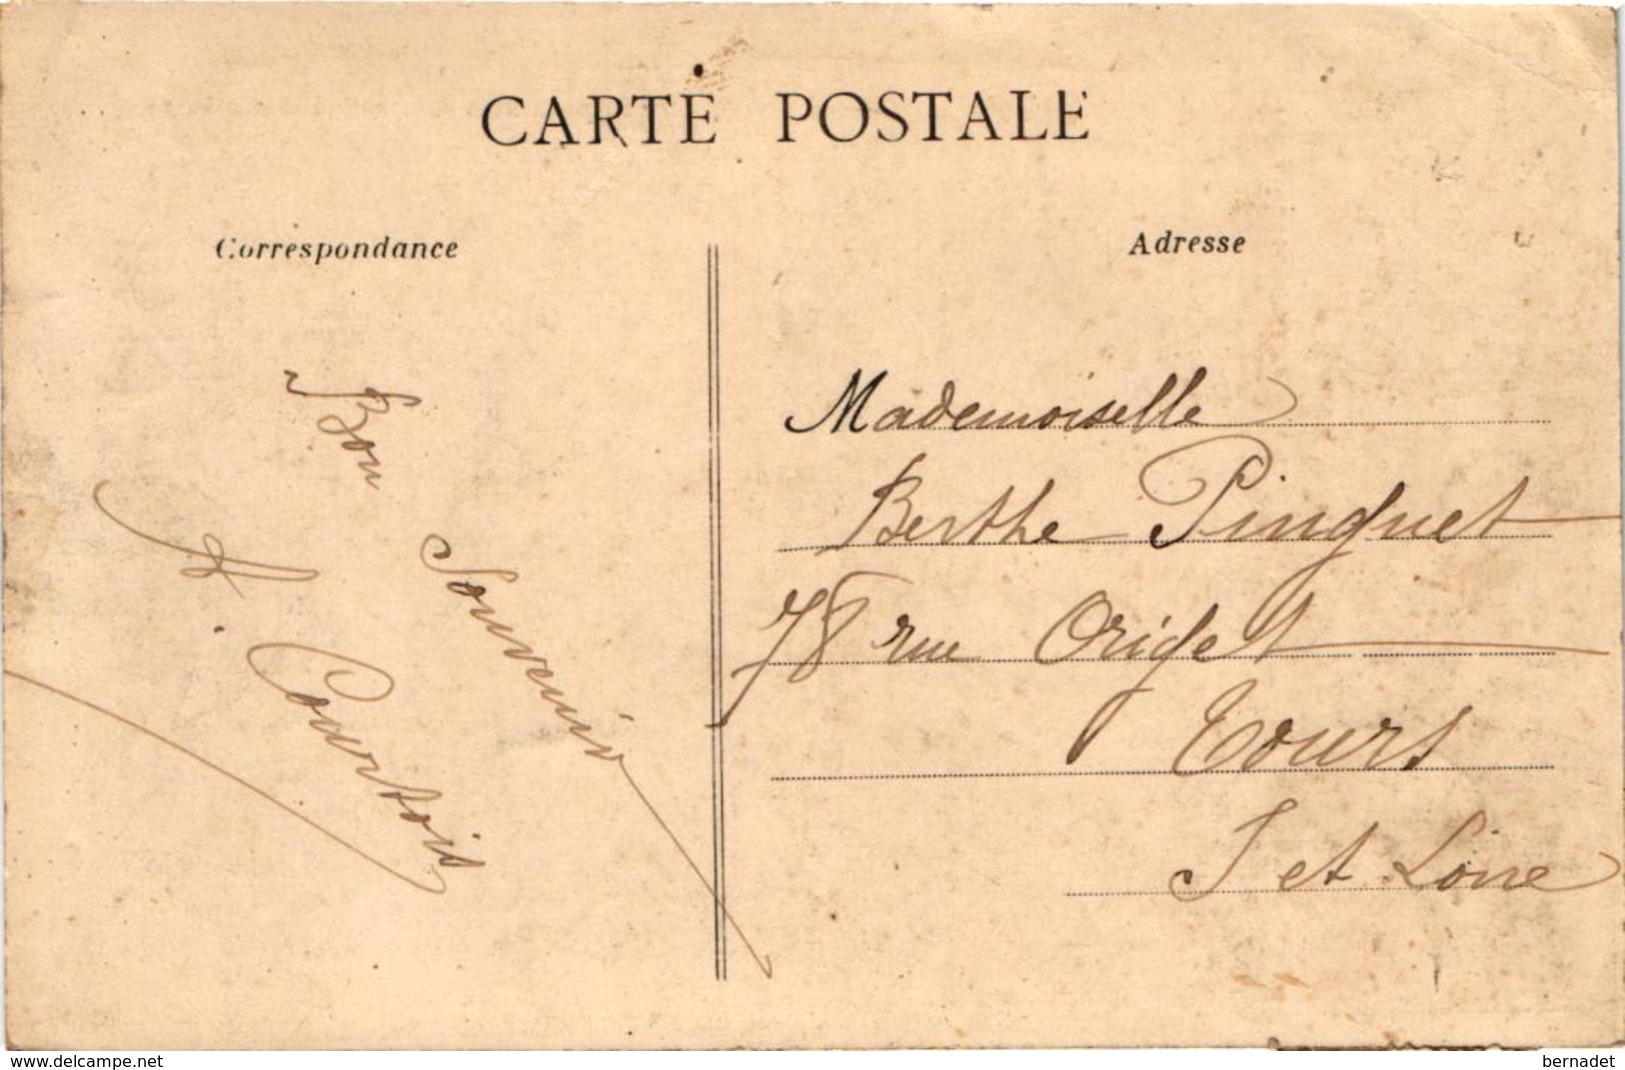 CARTE POSTALE
Correspondance
Bon Souvenir
A. Courtois
Adresse
Mademoiselle
Berthe Pinguet
78 rue Origet
Tours
I et Loire
www.delcampe.net
bernadet